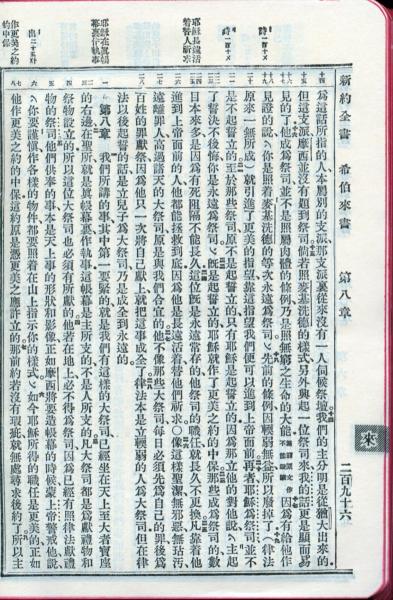 新約全書 希伯來書 第八章 來 二百九十六
爲這話所指的人本屬別的支派那支派裏從來沒有一人伺候祭壇我們的主分明是從猶大出來的
但這支派摩西並沒有題到祭司倘若照麥基洗德的樣式另外興起一位祭司來我的話更是顯而易
見的了他成爲祭司並不是照屬肉體的條例乃是照無窮之生命的大能無窮原文作不能毀壞因爲有給他作
見證的說你是照着麥基洗德的等次永遠爲祭司先前的條例因輭弱無益所以廢掉了(律法
原來一無所成)就引進了更美的指望靠這指望我們便可以進到上帝面前再者耶穌爲祭司並不
是不起誓立的至於那些祭司原不是起誓立的只有耶穌是起誓立的因爲那立他的對他說主起
了誓決不後悔你是永遠爲祭司既是起誓立的耶穌就作了更美之約的中保那些成爲祭司的數
目本來多是因爲有死阻隔不能長久這位既是永遠常存的他祭司的職任就長久不更換凡靠着他
進到上帝面前的人他都能拯救到底因爲他是長遠活着替他們祈求○像這樣聖潔無邪惡無玷污
遠離罪人高過諸天的大祭司原是與我們合宜的他不像那些大祭司每日必須先爲自己的罪後爲
百姓的罪獻祭因爲他只一次將自己獻上就把這事成全了律法本是立輭弱的人爲大祭司但在律
法以後起誓的話是立兒子爲大祭司乃是成全到永遠的
第八章 我們所講的事其中第一要緊的就是我們有這樣的大祭司已經坐在天上至大者寶座
的右邊在聖所就是眞帳幕裏作執事這帳幕是主所支的不是人所支的凡大祭司都是爲獻禮物和
祭物設立的所以這位大祭司也必須有所獻的他若在地上必不得爲祭司因爲已經有照律法獻禮
物的祭司他們供奉的事本是天上事的形狀和影像正如摩西將要造帳幕的時候蒙上帝警戒他說
你要謹愼作各樣的物件都要照着在山上指示你的樣式如今耶穌所得的職任是更美的正如
他作更美之約的中保這約原是憑更美之應許立的那前約若沒有瑕疵就無處尋求後約了所以主
詩一百十
詩一百十
耶穌長遠活着替人祈求
耶穌在眞帳幕裏作執事
出二十五
作更美之約的中保